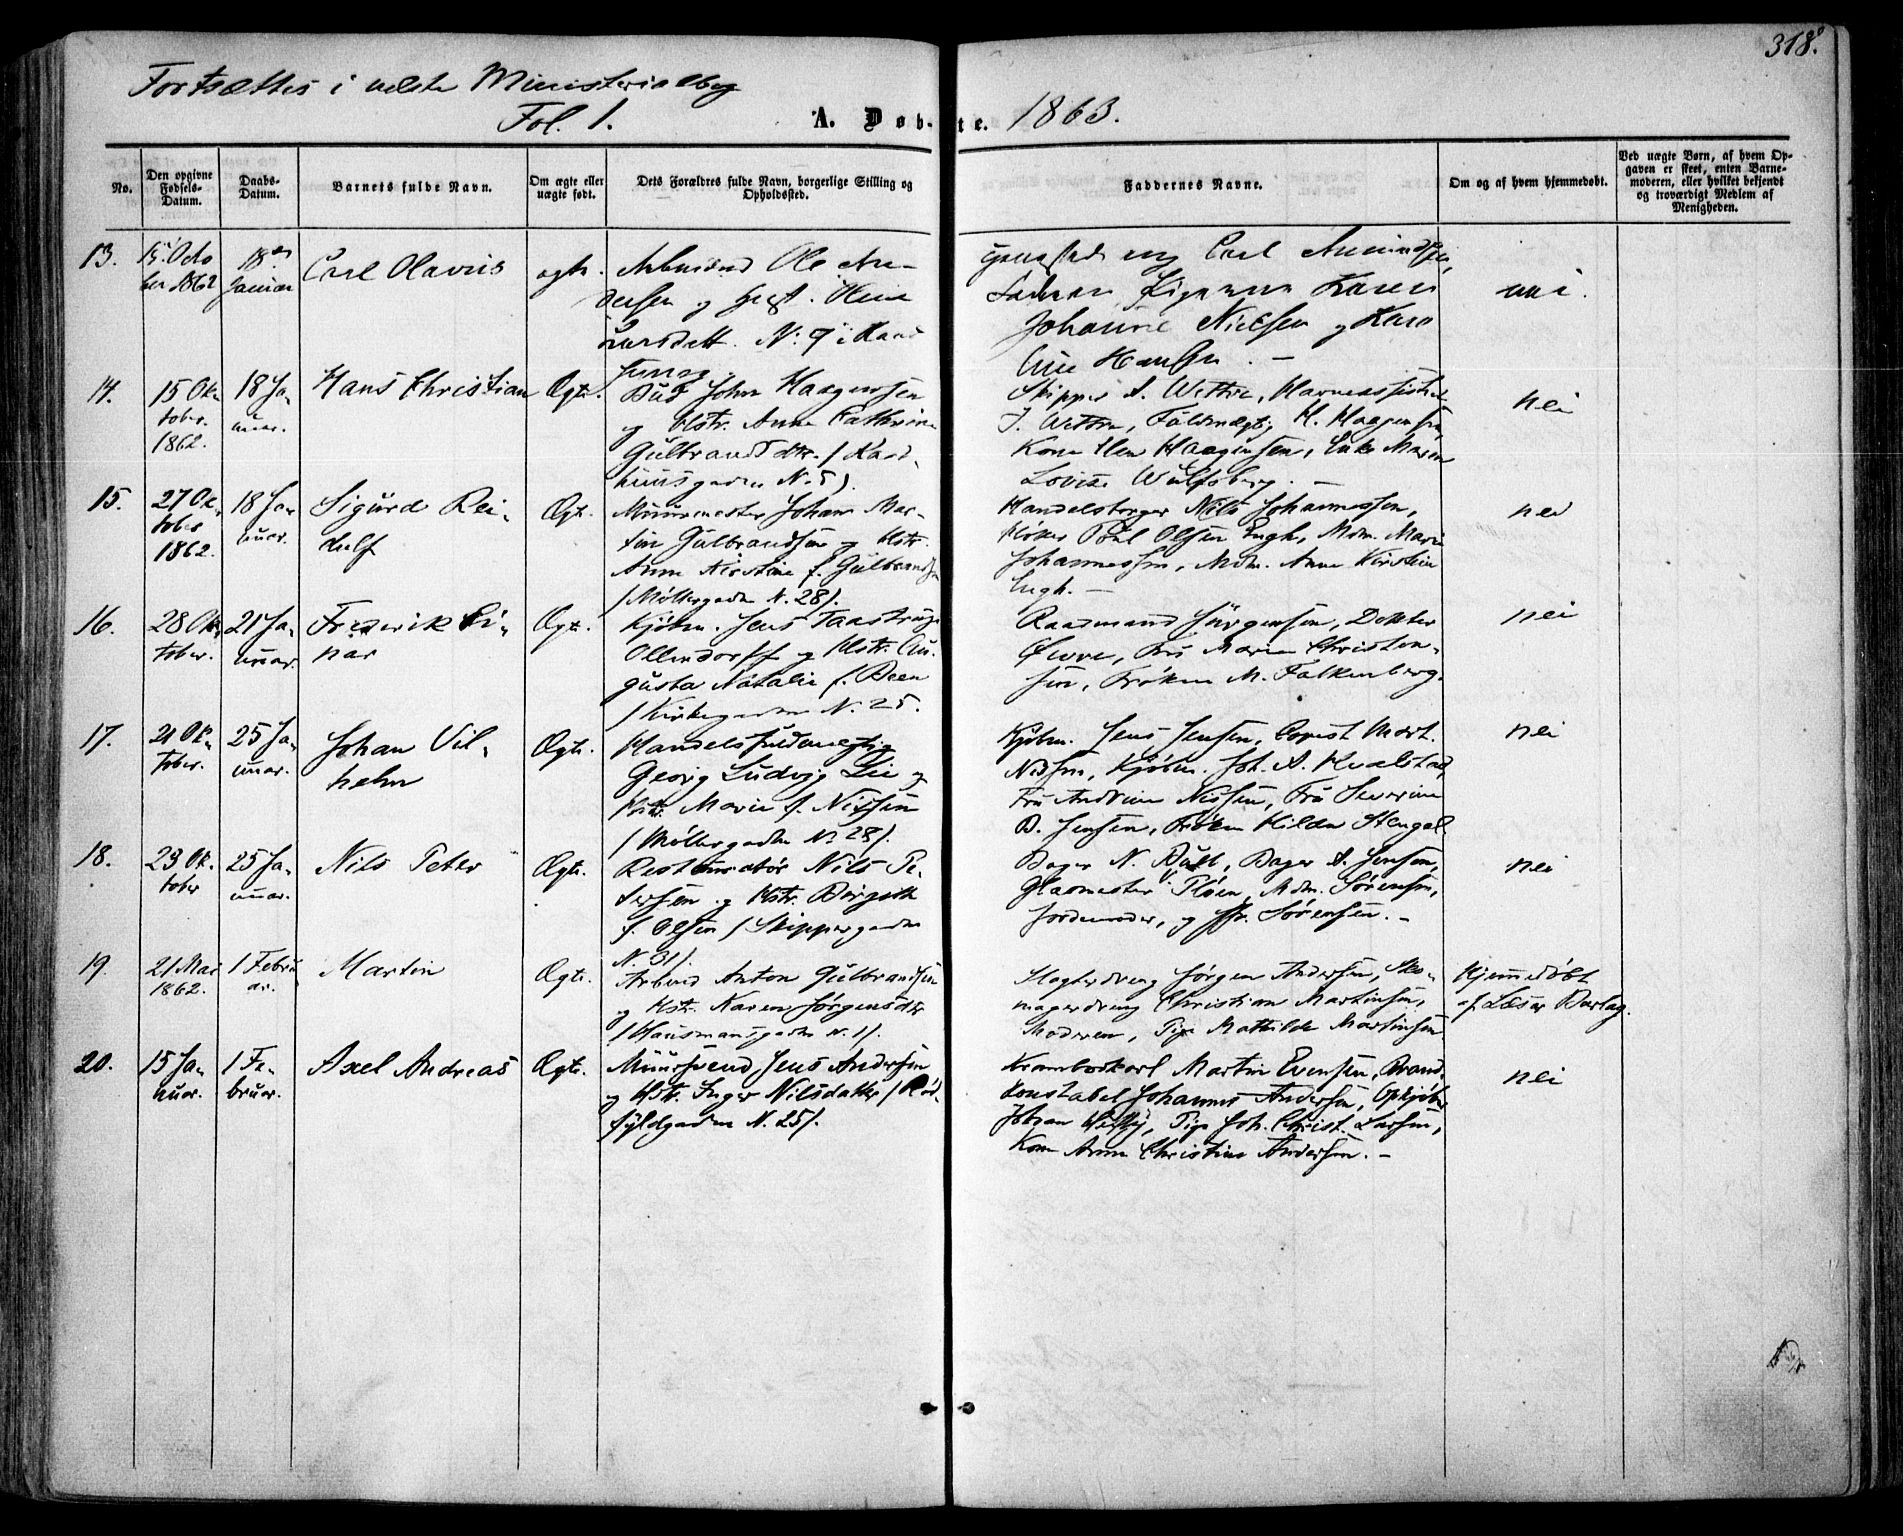 318.
Fortsættes i næste Ministerialbog
Fol. 1.
A. Døbte. 1863.
No.
Den opgivne Fødsels-Datum.
Daabs-Datum.
Barnets fulde Navn.
Om ægte eller uægte født.
Dets Forældres fulde Navn, borgerlige Stilling og Opholdssted.
Faddernes Navne.
Om og af hvem hjemmedøbt.
Ved uægte Børn, af hvem Opgaven er skeet, enten Barnemoderen, eller hvilket bekjendt og troværdigt Medlem af Menigheden.
13.
15 Octo
ber 1862
18de
Januar
Carl Olavius
ægte.
Arbmand Ole An-
dersen og
N: 9 i Raad
Carl Amundsen,
Karen
Johanne Nielsen og Karo
line Hansen. -
nei.
14.
15 Ok
tober.
1862.
18 Ja-
nuar.
Hans Christian
Ægte.
Bud John Haagensen
og Hstr. Anne Cathrine
Gulbrandsdtr. / Raad-
huusgaden N. 5 /.
Skipper A. Wettre,
J. Wettre, Fuldmægtig H. Haagensen,
Kone Haagensen, Enke Maren
Lovise Wulfsberg. -
nei
15.
27 Ok-
tober
1862.
18 Ja-
nuar.
Sigurd Rei-
dulf
Ægt.
Muurmester Johan Mar-
tin Gulbrandsen og Hstr.
Anne Kirstine f. Gulbrandsen
/ Møllergaden N. 28 /.
Handelsborger Nils Johannessen,
Høker Poul Olsen Engh, Mdm. Marie
Johannessen, Mdm. Anne Kirstine
Engh. -
nei
16.
28 Ok-
tober.
21 Ja-
nuar.
Frederik Ei-
nar
Ægt.
Kjøbm. Jens Taastrup
Ollendorff og Hstr. Au-
gusta Natalie f. Been
/ Kirkegaden N. 25.
Raadmand Jürgensen, Dokter
Øvre, Fru Marie Christen-
sen, Frøken M. Falkenberg.
nei
17.
21 Ok-
tober.
25 Ja-
nuar.
Johan Vil-
helm
Ægte.
Handelsfuldmegtig
Georg Ludvig Lie og
Hstr. Marie f. Nissen
/ Møllergaden N. 28 /.
Kjøbm. Jens Jensen, Copist Mart.
Nissen, Kjøbm. Joh. A. Kvalstad,
Fru Andrine Nissen, Fru Severine
B. Jensen, Frøken Hilda Stengel
nei
18.
23 Ok-
tober
25 Ja-
nuar.
Nils Peter
Ægte.
Restauratør Nils Pe-
tersen og Hstr. Birgitte
f. Olsen / Skippergaden
N. 31 /.
Bager N. Bull, Bager A. Jensen,
Glasmester Pløen, Mdm. Sørensen,
Jordemoder, og Sørensen. -
nei
19.
21 Mai
1862.
1 Febru
ar.
Martin
Ægte.
Arbmd Anton Gulbrandsen
og Hstr. Karen Jørgensdtr
/ Hausmansgaden N. 1 /.
Slagterdreng Jørgen Andersen, Sko-
magerdreng Christian Martinsen,
Moderen, Pige Mathilde Martinsen
Hjemmedøbt
af Læser Barlag.
20.
15 Ja-
nuar.
1 Fe-
bruar.
Axel Andreas
Ægte.
Muursvend Jens Andersen
og Hstr. Inger Nilsdatter / Rød-
fyldgaden N. 25 /.
Krambodkarl Martin Evensen, Brand-
konstabel Johannes Andersen, Opkjøber
Johan Pige Joh. Christ. Larsen,
Kone Anne Christine Andersen. -
nei